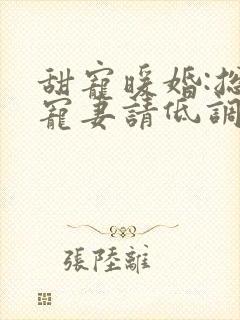 甜寵暖婚:總
寵妻請低調
張陸離